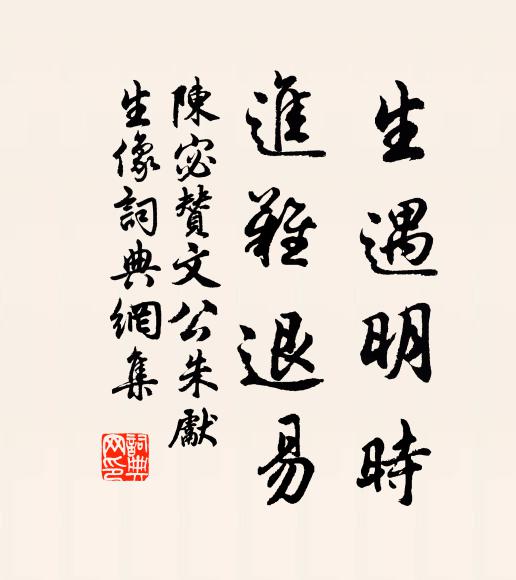 生遇明時
進難退易
陳宓贊文公朱獻
生像詞典網集
詞典網印